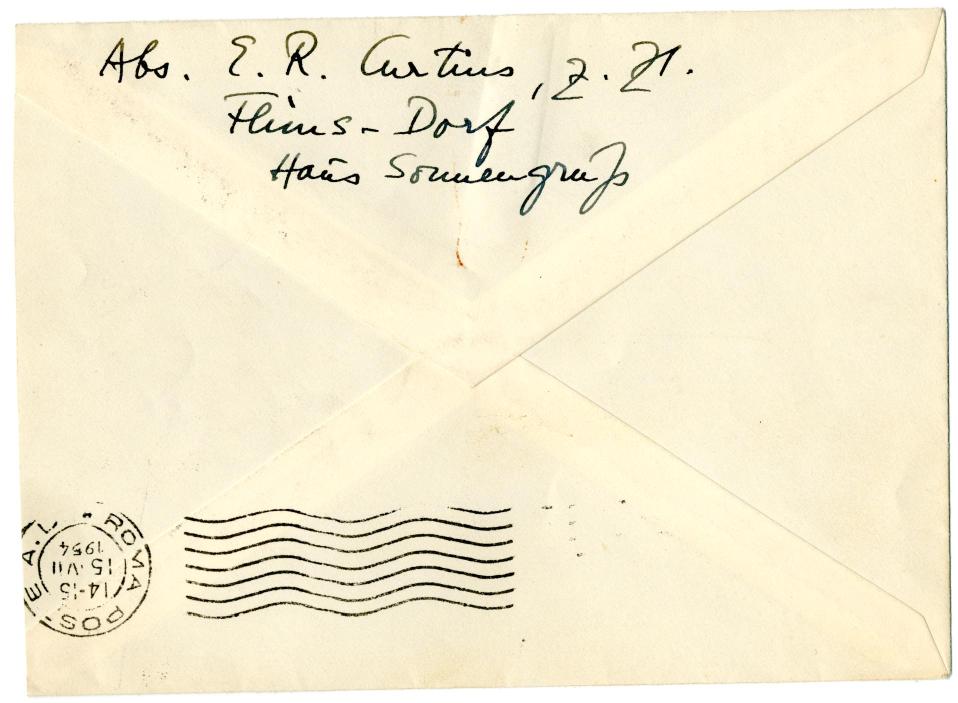 Abs. E. R. Curtius, z. Zt.
Flims-Dorf
Haus Sonnengruß
ROMA POS
A.D.
14-15
15.VII
1954